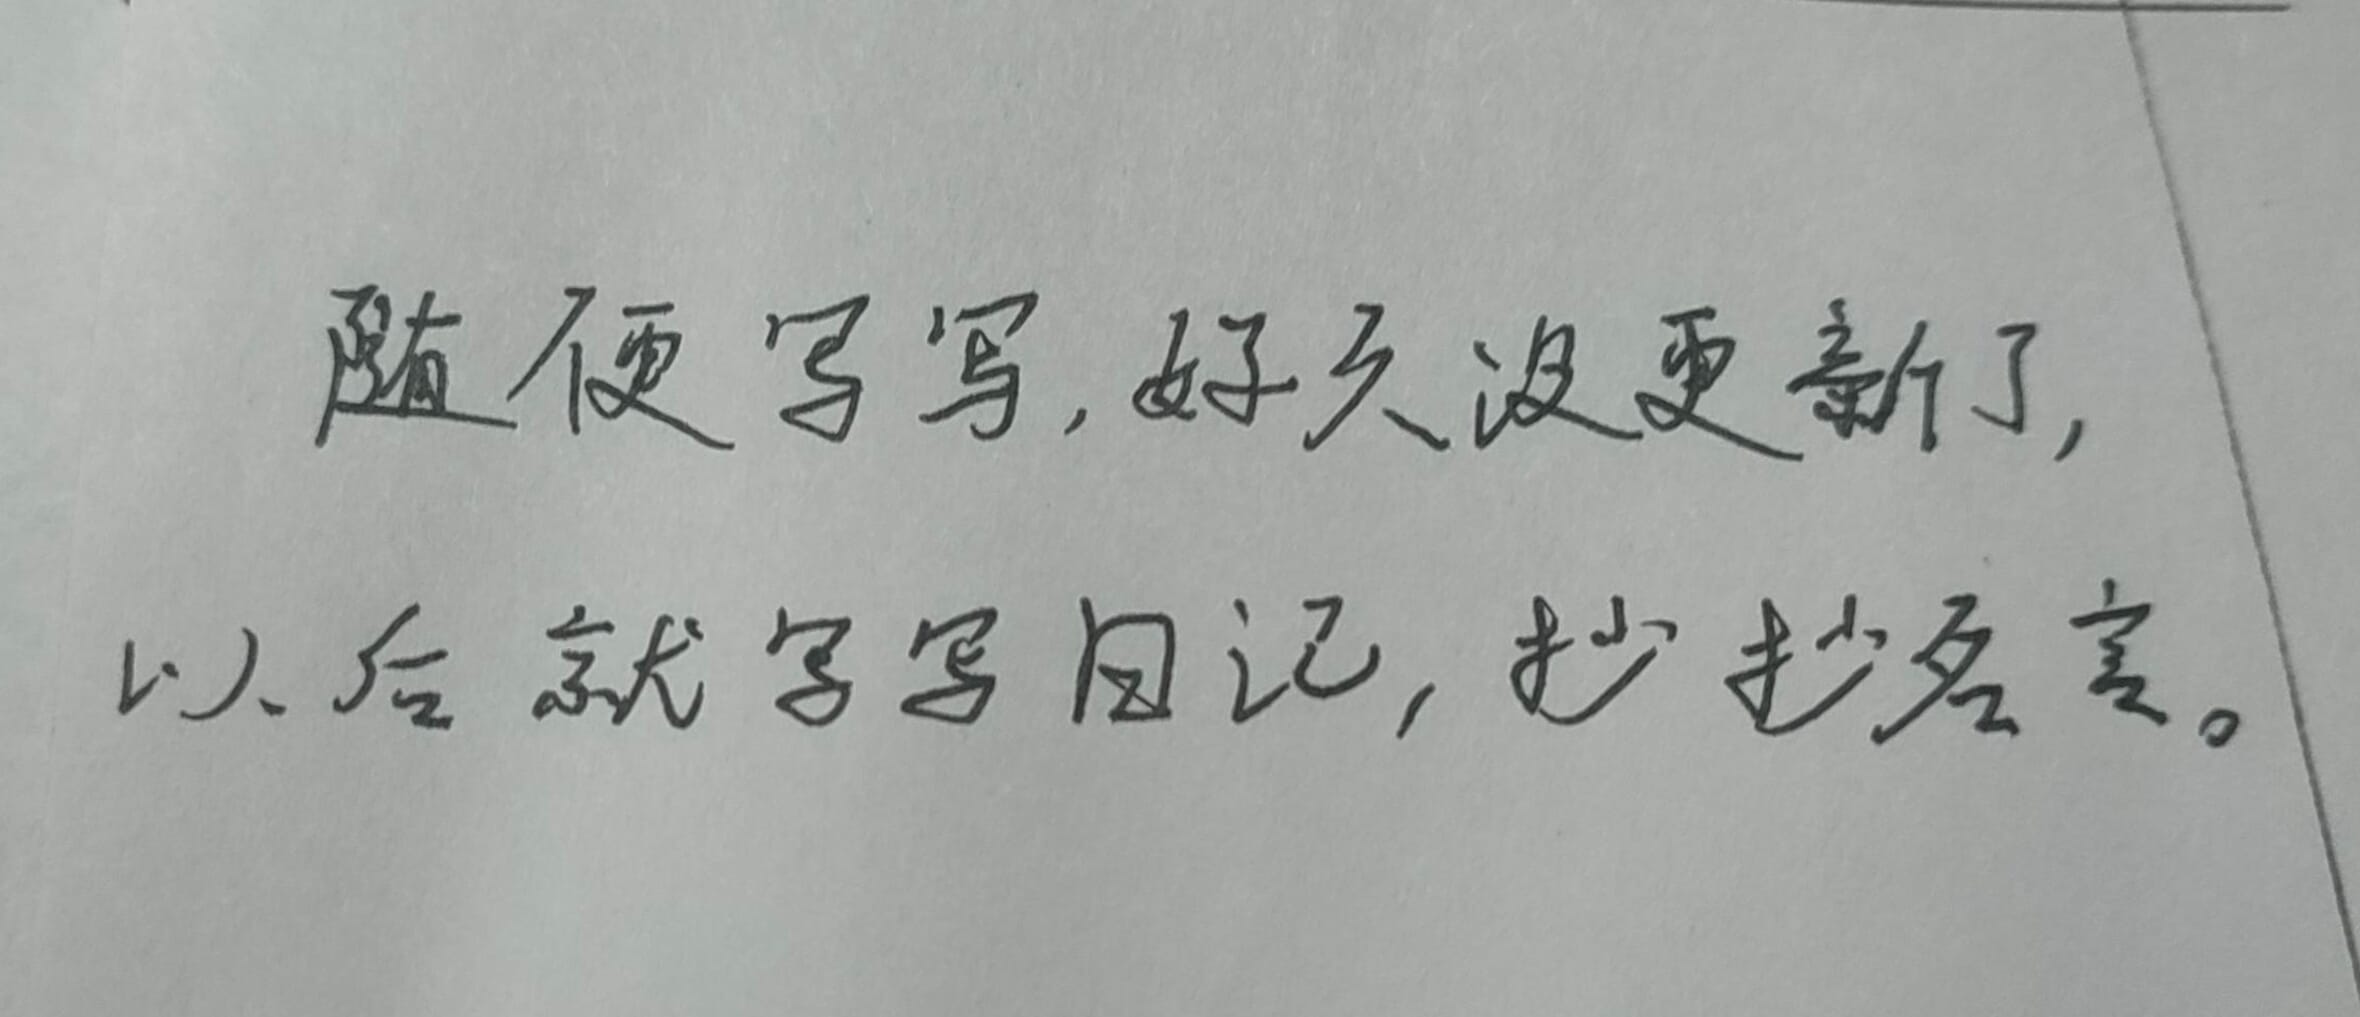 随便写写,好久没更新了,
以后就写写日记,抄抄名言。